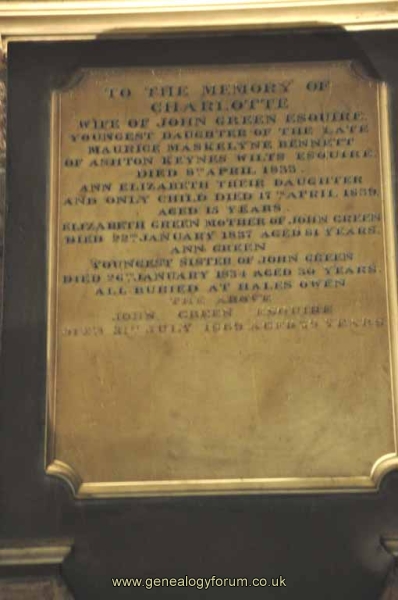 TO THE MEMORY OF
CHARLOTTE
WIFE OF JOHN GREEN ESQUIRE.
YOUNGEST DAUGHTER OF THE LATE
MAURICE MASKELYNE BENNETT
OF ASHTON KEYNES WILTS ESQUIRE.
DIED 9TH APRIL
ANN ELIZABETH THEIR DAUGHTER
AND ONLY CHILD DIED 17TH APRIL 1839.
AGED 15 YEARS.
ELIZABETH GREEN MOTHER OF JOHN GREEN
DIED 22ND JANUARY 1837 AGED 81 YEARS.
ANN GREEN
YOUNGEST SISTER OF JOHN GREEN
DIED 26TH JANUARY 1834 AGED 30 YEARS.
ALL BURIED AT HALES OWEN
THE ABOVE
JOHN GREEN ESQUIRE
DIED 21ST JULY 1869 AGED 79 YEARS
www.genealogyforum.co.uk